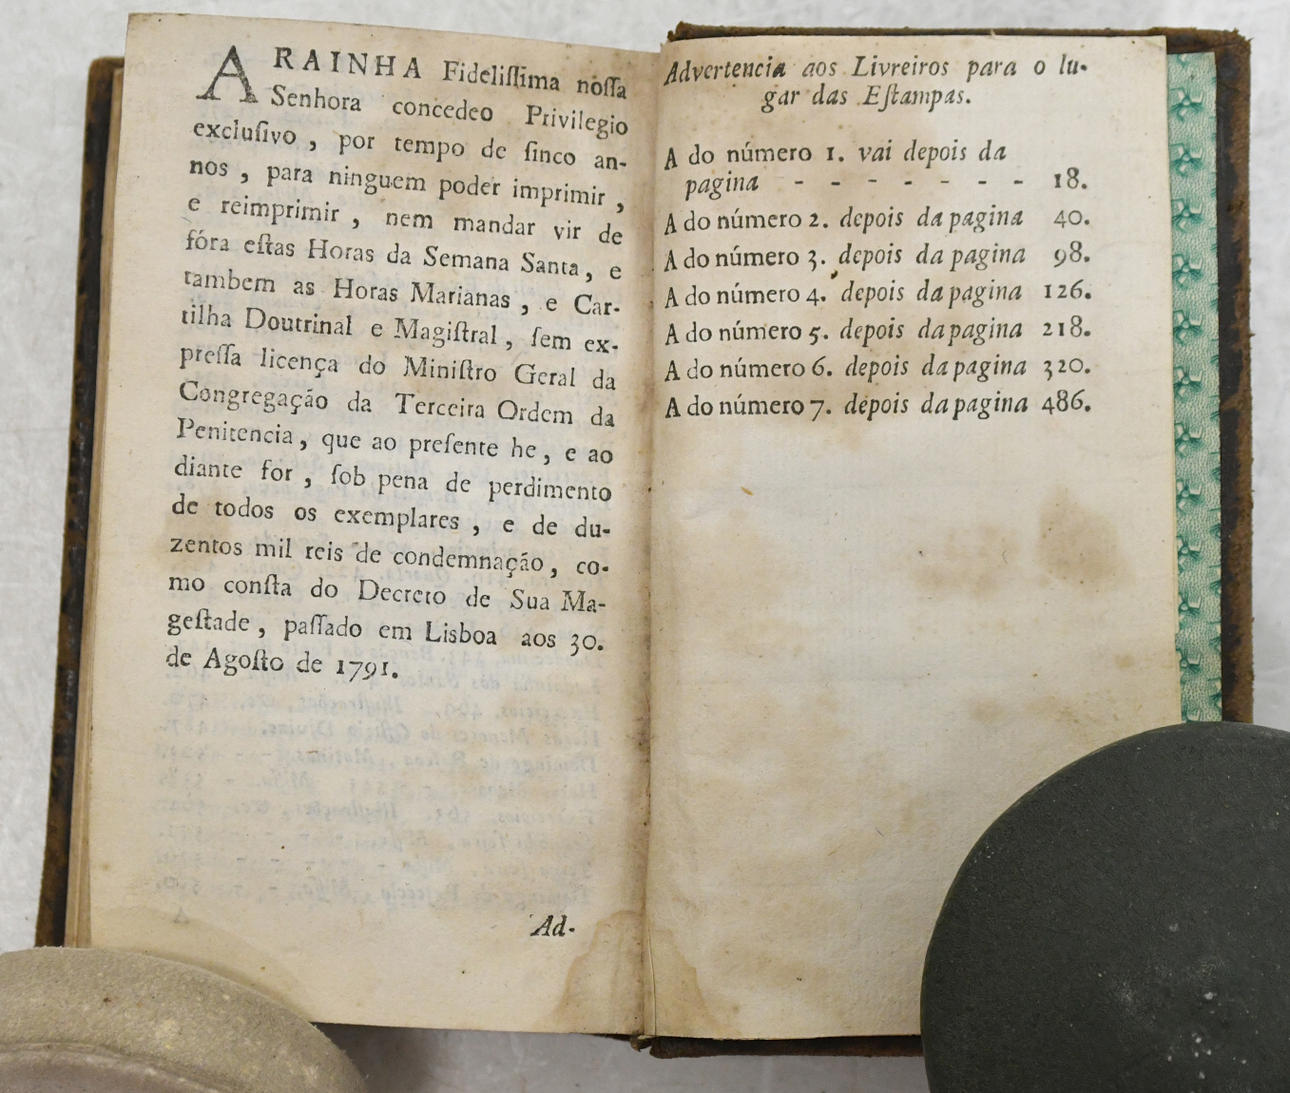 A RAINHA Fideliſſima noſſa
Senhora concedeo Privilegio
excluſivo , por tempo de ſinco an-
nos , para ninguem poder imprimir ,
e reimprimir , nem mandar vir de
fóra eſtas Horas da Semana Santa , e
tambem as Horas Marianas , e Car-
tilha Doutrinal e Magiſtral , ſem ex-
preſſa licença do Miniſtro Geral da
Congregação da Terceira Ordem da
Penitencia , que ao preſente he , e ao
diante for , ſob pena de perdimento
de todos os exemplares , e de du-
zentos mil reis de condemnação , co-
mo conſta do Decreto de Sua Ma-
geſtade , paſſado em Lisboa aos 30.
de Agoſto de 1791.
Ad-
Advertencia aos Livreiros para o lu-
gar das Eſtampas.
A do número 1. vai depois da
pagina - - - - - - - 18.
A do número 2. depois da pagina 40.
A do número 3. depois da pagina 98.
A do número 4. depois da pagina 126.
A do número 5. depois da pagina 218.
A do número 6. depois da pagina 320.
A do número 7. depois da pagina 486.